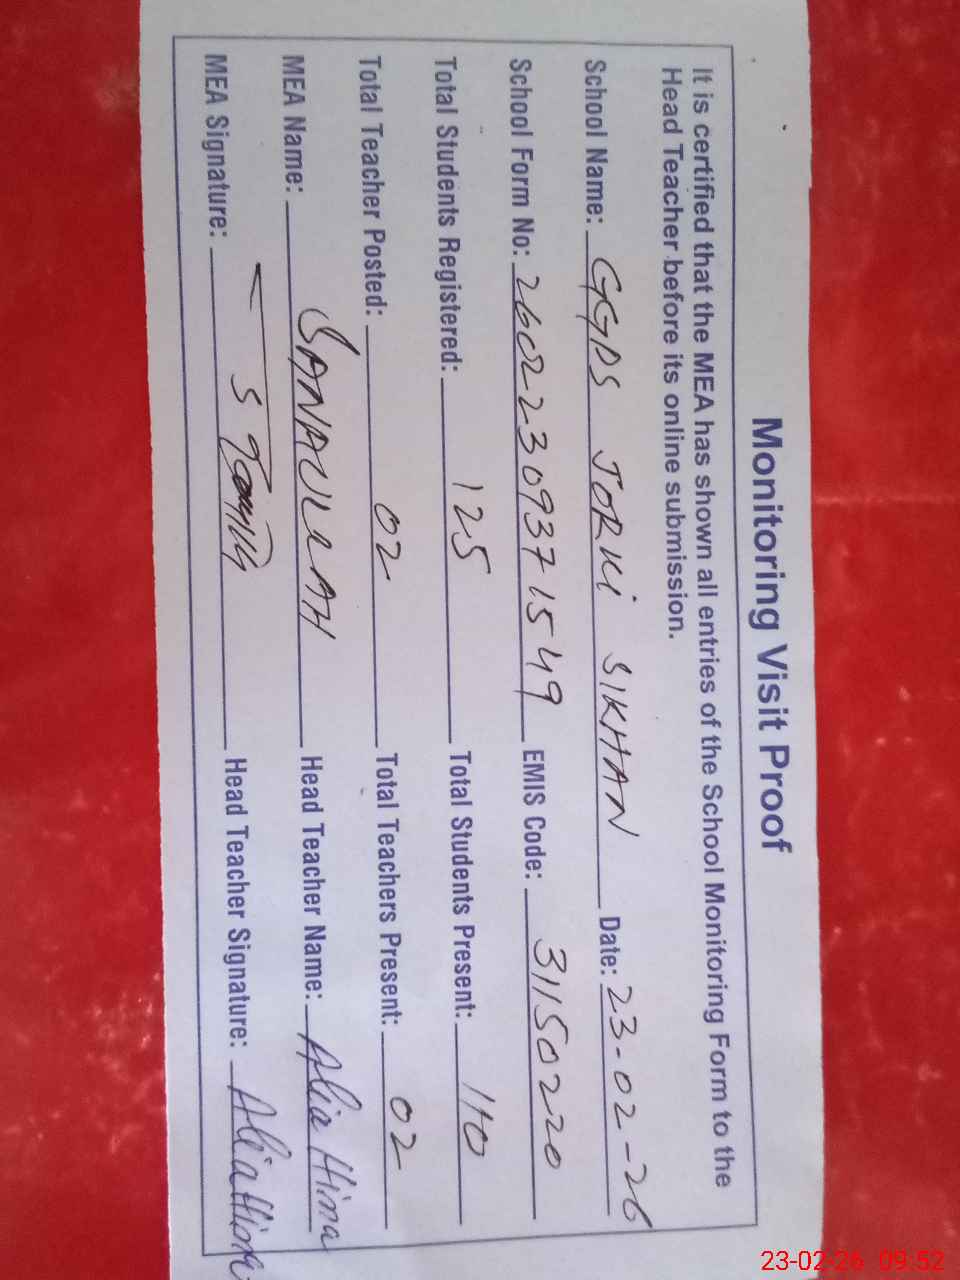 Monitoring Visit Proof
It is certified that the MEA has shown all entries of the School Monitoring Form to the
Head Teacher before its online submission.
School Name: GGPS JORKI SIKHAN Date: 23-02-26
School Form No: 26022309371549 EMIS Code: 31150220
Total Students Registered: 125 Total Students Present: 110
Total Teacher Posted: 02 Total Teachers Present: 02
MEA Name: SANAULLAH Head Teacher Name: Alia Hina
MEA Signature: Head Teacher Signature: Alia Hina
23-02-26 09:52